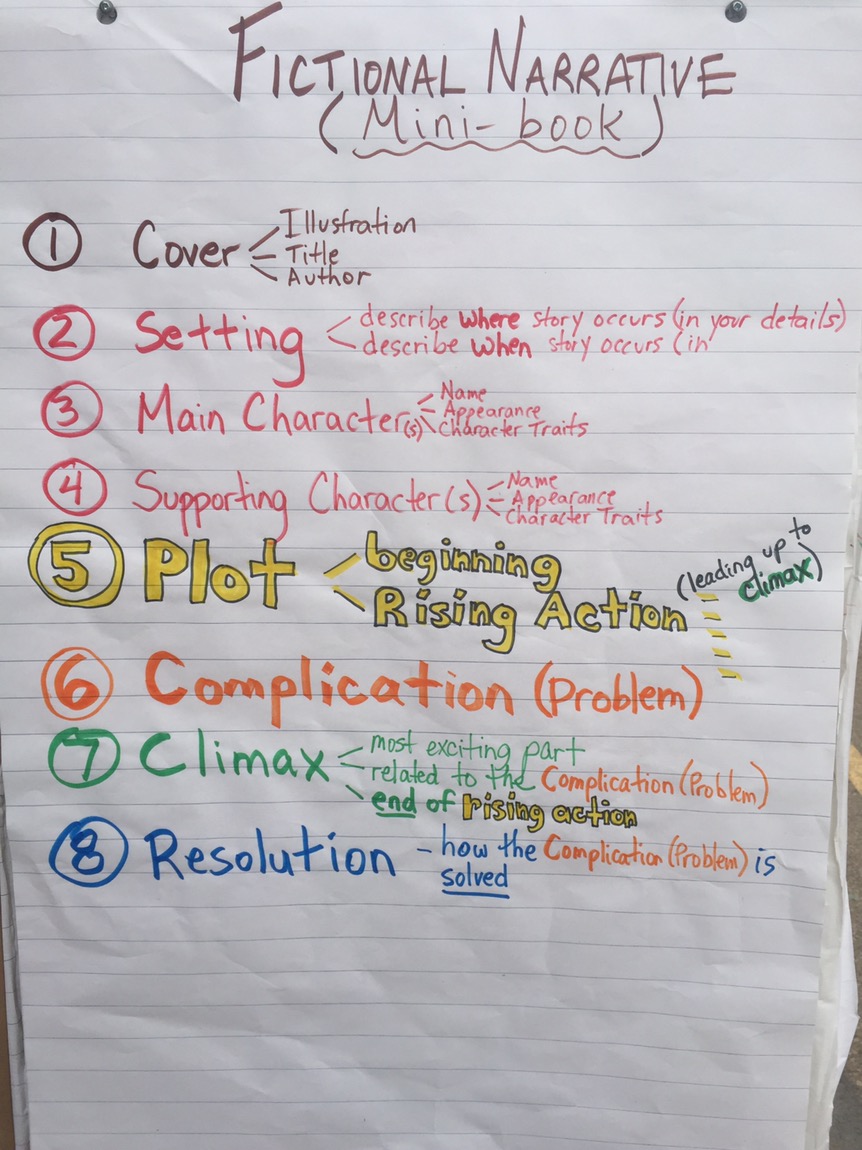 FICTIONAL NARRATIVE
(Mini-book)
1 Cover
Illustration
Title
Author
2 Setting
describe where story occurs (in your details)
describe when story occurs (in
3 Main Character(s)
Name
Appearance
Character Traits
4 Supporting Character(s)
Name
Appearance
Character Traits
5 Plot
beginning
Rising Action
(leading up to
climax)
6 Complication (Problem)
7 Climax
most exciting part
related to the Complication (Problem)
end of rising action
8 Resolution - how the Complication (Problem) is
solved